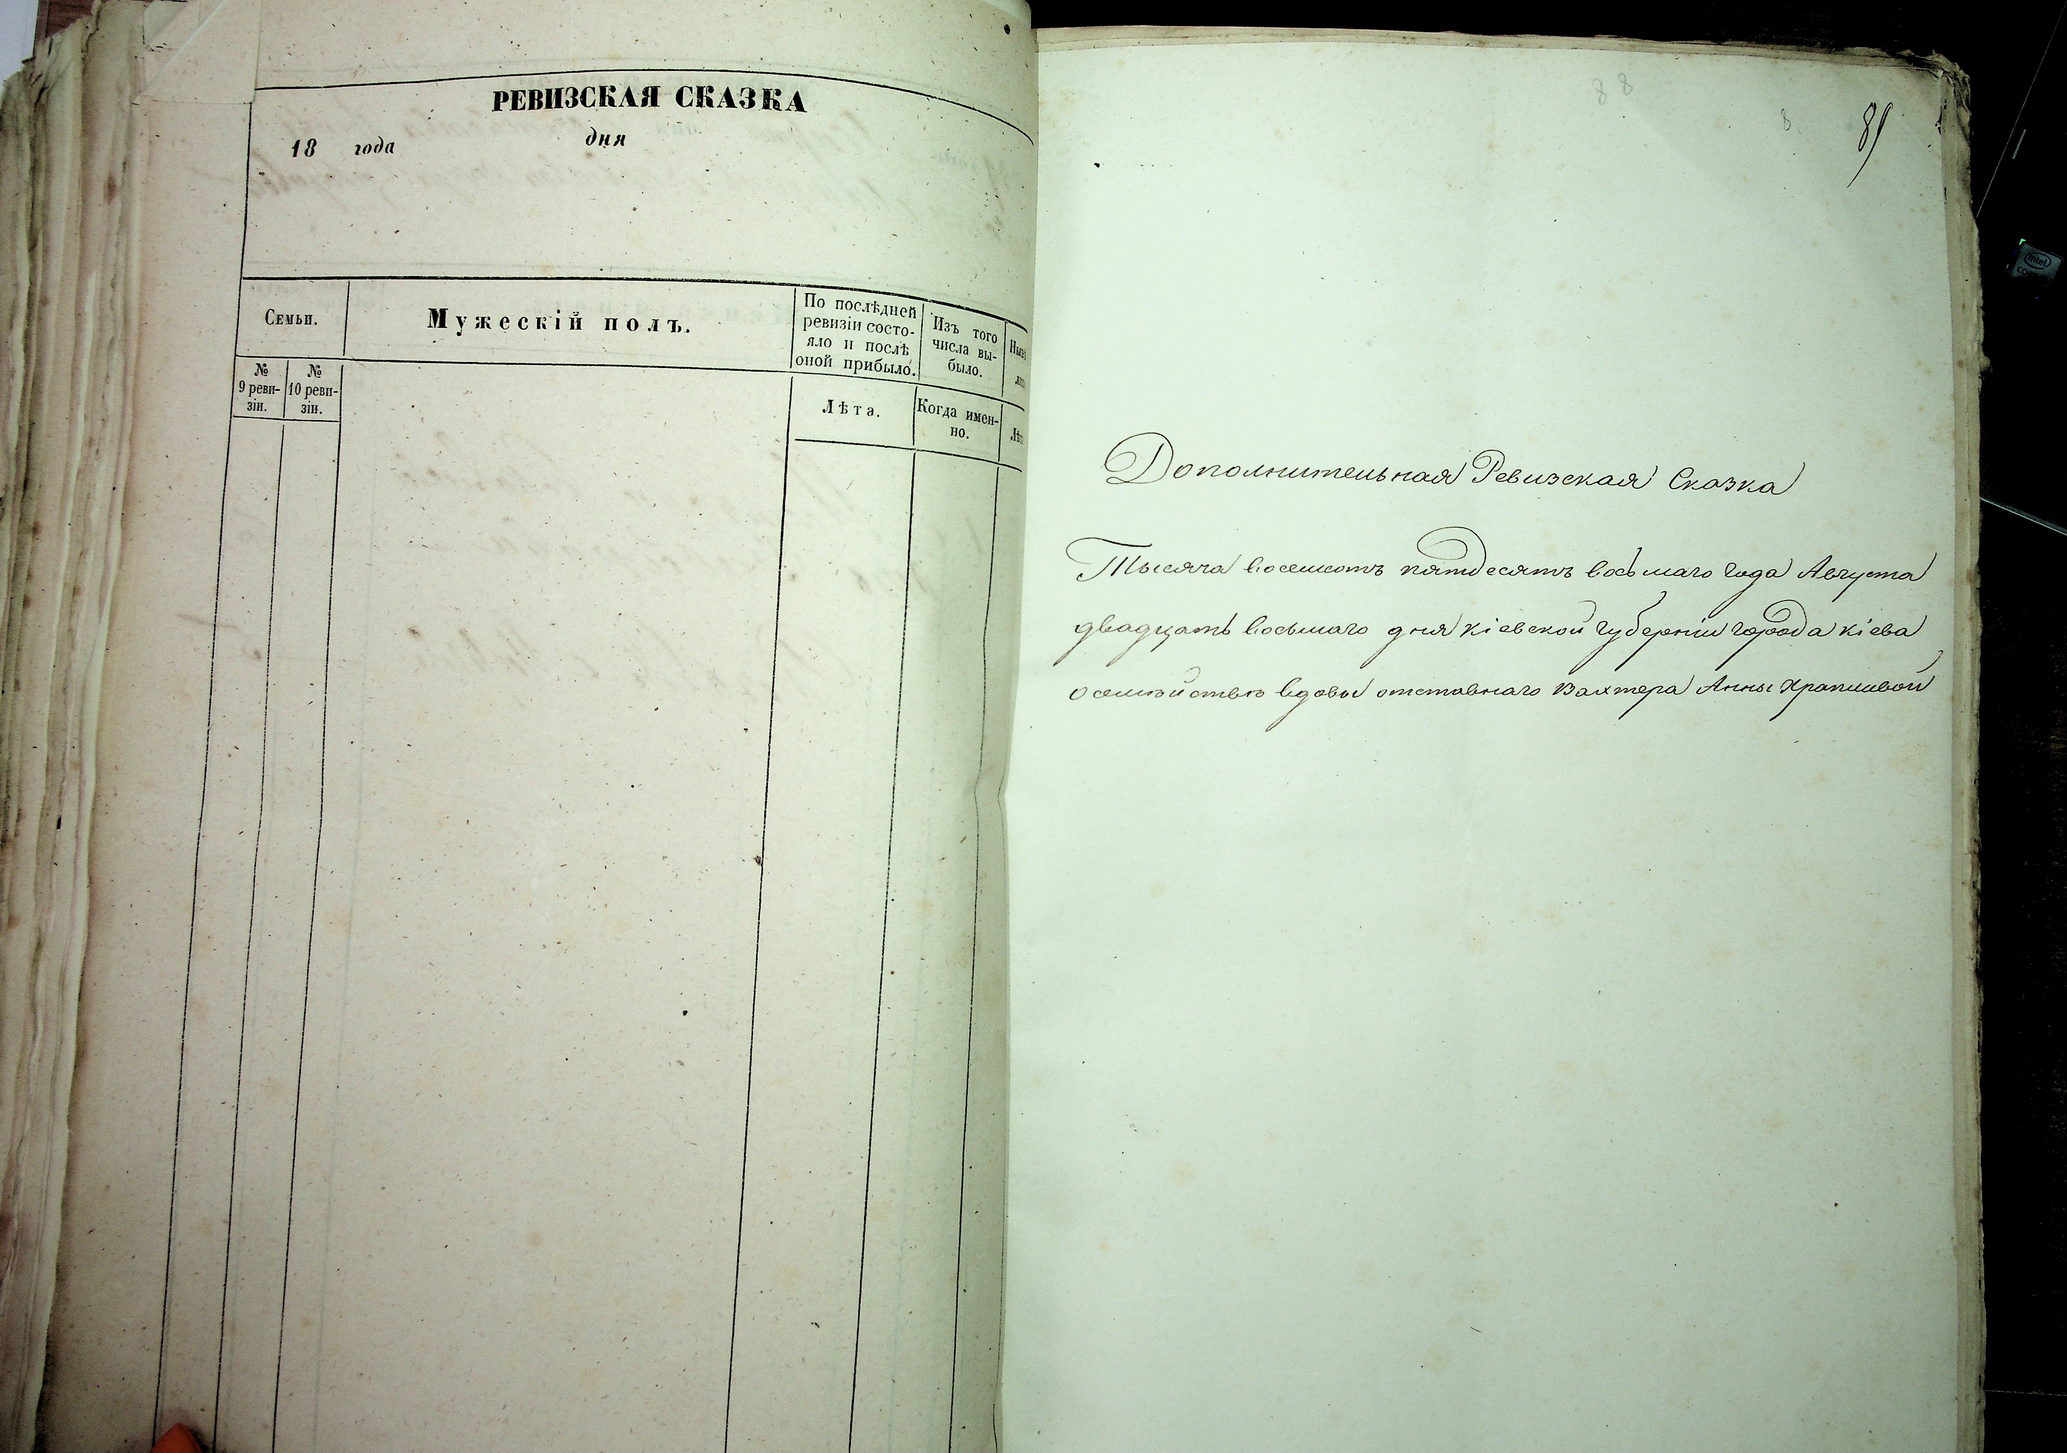 РЕВИЗСКАЯ СКАЗКА
18 года дня
Семьи.
Мужескій полъ.
По послѣдней
ревизіи состо-
яло и послѣ
оной прибыло.
Изъ того
числа вы-
было.
№
9 реви-
зіи.
№
10 реви-
зіи.
Лѣта.
Когда имен-
но.
88
8
Дополнительная Ревизская Сказка
Тысяча восемсотъ пятдесятъ восьмаго года Августа
двадцать восьмаго дня Кіевской губерніи города Кіева
о семѣйствѣ вдовы отставнаго Вахтера Анны
intel